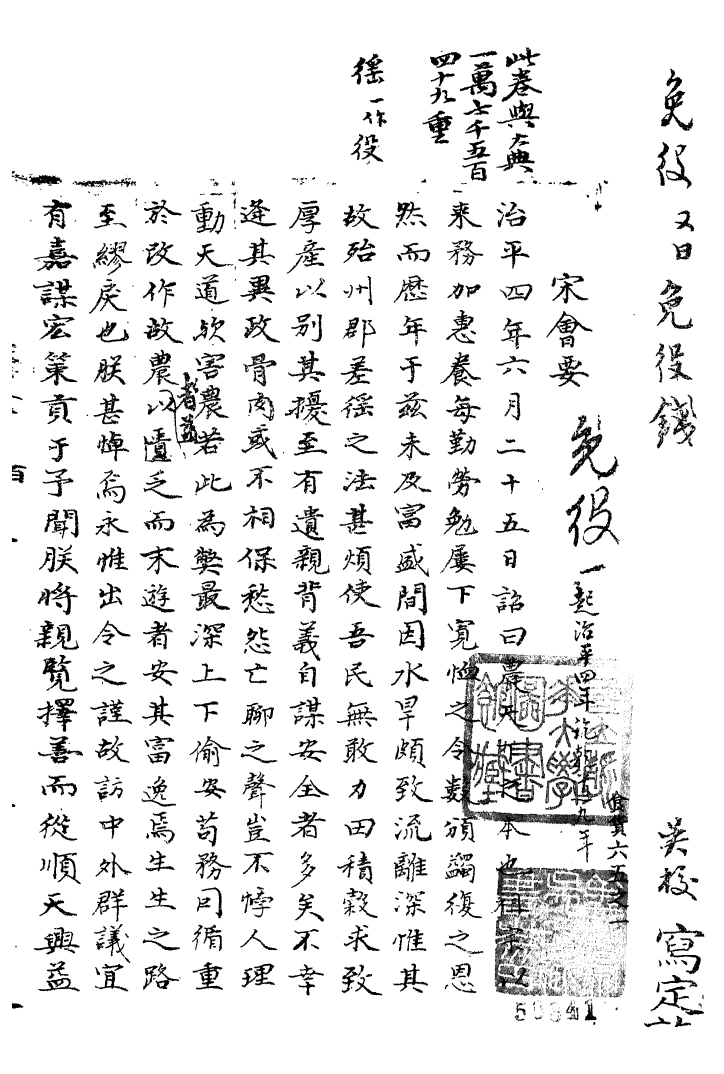 免役 又曰免役錢
吳校 寫定
宋會要
免役 一 起治平四年訖
食貨六五之一
此卷與大典
一萬七千五百
四十九重
徭一作役
治平四年六月二十五日詔曰農天下之本也祖宗以
來務加惠養每勤勞勉屢下寬恤之令數頒蠲復之恩
然而歷年于茲未及富盛間因水旱頗致流離深惟其
故殆州郡差徭之法甚煩使吾民無敢力田積穀求致
厚產以別其擾至有遺親背義自謀安全者多矣不幸
逢其異政骨肉或不相保愁怨亡聊之聲豈不悖人理
動天道歟害農若此為弊最深上下偷安苟務因循重
於改作故農以匱乏而末遊者安其富逸焉生生之路
者益
至繆戾也朕甚悼焉永惟出令之謹故訪中外群議宜
有嘉謀宏策貢于予聞朕將親覽擇善而從順天興益
50341